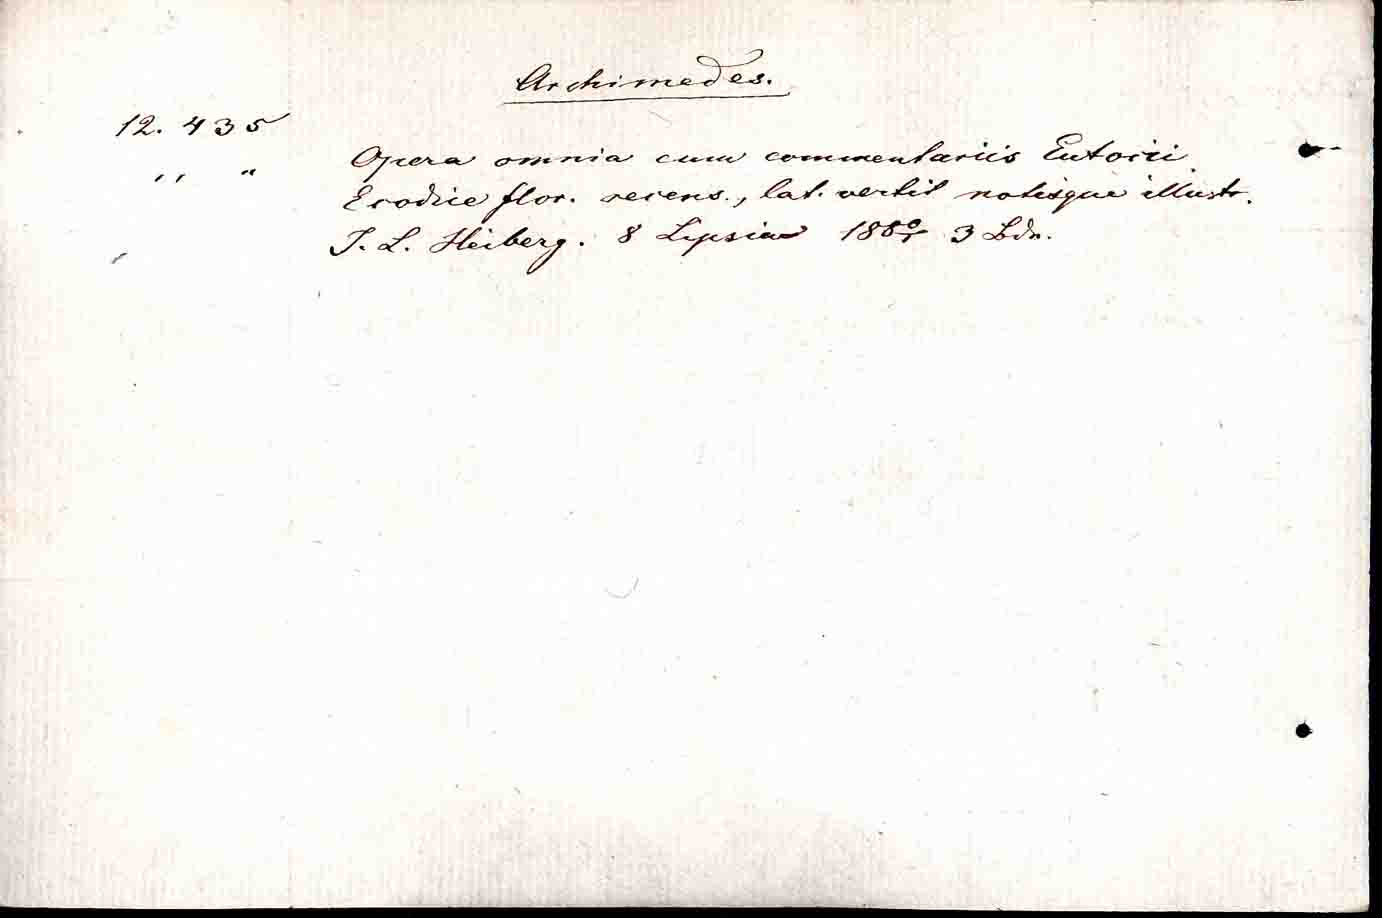 Archimedes.
12. 435
Opera omnia cum commentariis Eutocii
" "
E codice flor. recens., lat. vertit notisque illustr.
J. L. Heiberg. 8 Lipsiae 1880/1 3 Bde.